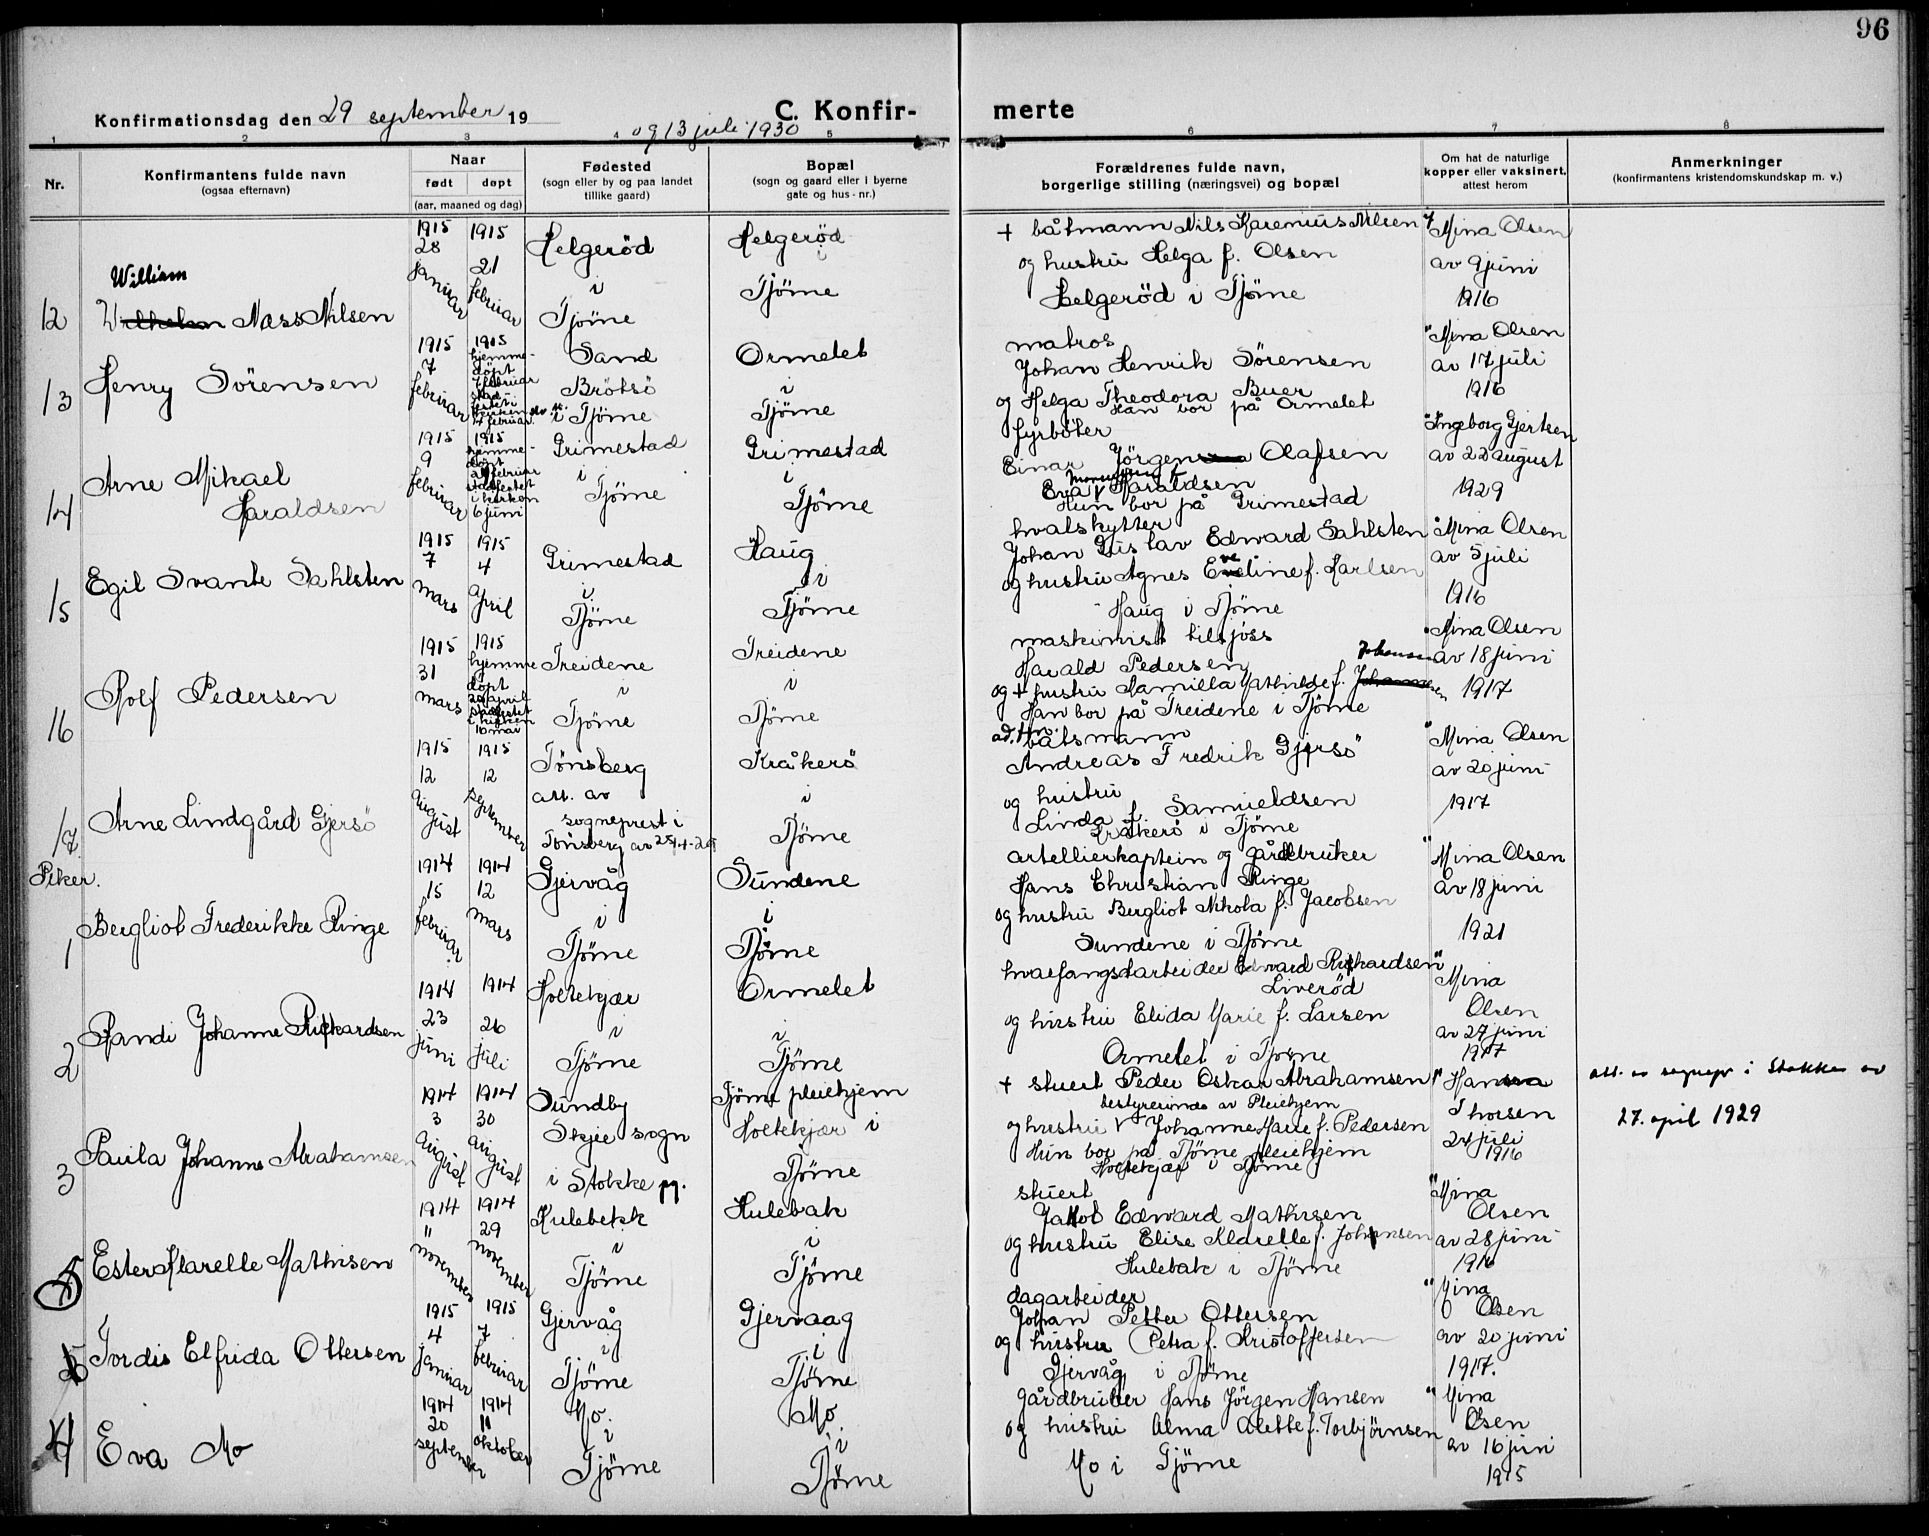 96
Konfirmationsdag den 29 september 19
og 13 juli 1930
C. Konfir-
merte
1 2 3 4 5 6 7 8
Nr.
Konfirmantens fulde navn
(ogsaa efternavn)
Naar
født døpt
(aar, maaned og dag)
Fødested
(sogn eller by og paa landet
tillike gaard)
Bopæl
(sogn og gaard eller i byerne
gate og hus-nr.)
Forældrenes fulde navn,
borgerlige stilling (næringsvei) og bopæl
Om hat de naturlige
kopper eller vaksinert,
attest herom
Anmerkninger
(konfirmantens kristendomskundskap m. v.)
12
William
Wilhelm Næss Nilsen
1915
28
januar
1915
21
februar
Helgeröd
i
Tjöme
Helgeröd
i
Tjöme
+ båtmann Nils Karenius Nilsen
og hustru Helga f. Olsen
Helgeröd i Tjöme
Mina Olsen
av 9 juni
1916
13
Henry Sörensen
1915
7
februar
1915
hjemme-
döpt
februar
Sand
Brötsö
i Tjöme
Ormelet
i
Tjöme
matros
Johan Henrik Sörensen
og Helga Theodora Buer
Han bor på Ormelet
" Mina Olsen
av 17 juli
1916
14
Arne Mikael
Haraldsen
1915
9
februar
1915
hjemme-
döpt
februar
stadfestet
i kirken
6 juni
Grimestad
i
Tjöme
Grimestad
i
Tjöme
fyrböter
Einar Jörgen Olafsen
Eva Haraldsen
Hun bor på Grimestad
" Ingeborg Gjertsen
av 22 august
1929
15
Egil Svante Sahlsten
1915
7
mars
1915
4
April
Grimestad
i
Tjöme
Haug
i
Tjöme
hvalskytter
Johan Gustav Edward Sahlsten
og hustru Agnes Eveline f. Karlsen
Haug i Tjöme
" Mina Olsen
av 5 juli
1916
16
Rolf Pedersen
1915
31
mars
1915
hjemme
döpt
april
stadfestet
i kirken
16 mai
Treidene
i
Tjöme
Treidene
i
Tjöme
maskinist tilsjöss
Harald Pedersen
og + hustru Kamilla Mathilde f. Johansen
Han bor på Treidene i Tjöme
" Mina Olsen
av 18 juni
1917
17
Arne Lindgård Gjersö
1915
12
August
1915
12
september
Tönsberg
att. av
sogneprest i
Tönsberg av
Kråkerö
i
Tjöme
båtsmann
Andreas Fredrik Gjersö
og hustru
Linda f. Samuelsen
Kråkerö i Tjöme
" Mina Olsen
av 20 juni
1917
Piker.
1
Bergliot Frederikke Ringe
1914
15
februar
1914
12
mars
Gjervåg
i
Tjöme
Sundene
i
Tjöme
artellierkaptein og gårdbruker
Hans Christian Ringe
og hustru Bergliot Nikola f. Jacobsen
Sundene i Tjöme
" Mina Olsen
av 18 juni
1921
2
Randi Johanne Rikardsen
1914
23
juni
1914
26
juli
Holtekjær
i
Tjöme
Ormelet
i
Tjöme
hvalfangstarbeider Edvard Rikardsen
Liveröd
og hustru Elida Marie f. Larsen
Ormelet i Tjöme
" Mina
Olsen
av 27 juni
1917
3
Paula Johanne Abrahamsen
1914
3
August
1914
30
August
Sundby
Skjee sogn
i Stokke
Tjöme pleiehjem
Holtekjær i
Tjöme
+ stuert Peder Oskar Abrahamsen
bestyrerinde av Pleiehjem
og hustru Johanne Marie f. Pedersen
Hun bor på Tjöme pleiehjem
Holtekjær i Tjöme
" Hanna
Thorsen
24 juli
1916
att. av sognepr i Stokke av
27. april 1929
5
Ester Klarelle Mathisen
1914
11
november
1914
29
november
Hulebekk
i
Tjöme
Hulebak
i
Tjöme
stuert
Jakob Edward Mathisen
og hustru Elise Klarelle f. Johansen
Hulebak i Tjöme
" Mina
Olsen
av 28 juni
1916
Tordis Elfrida Ottersen
1915
4
januar
1915
7
februar
Gjervåg
i
Tjöme
Gjervaag
i
Tjöme
dagarbeider
Johan Petter Ottersen
og hustru Petra f. Kristoffersen
Gjervåg i Tjöme
" Mina
Olsen
av 20 juni
1917.
4
Eva Mo
1914
20
september
1914
11
oktober
Mo
i
Tjöme
Mo
i
Tjöme
Gårdbruker Hans Jörgen Hansen
og hustru Alma Alette f. Torbjørnsen
Mo i Tjöme
" Mina
Olsen
av 16 juni
1915